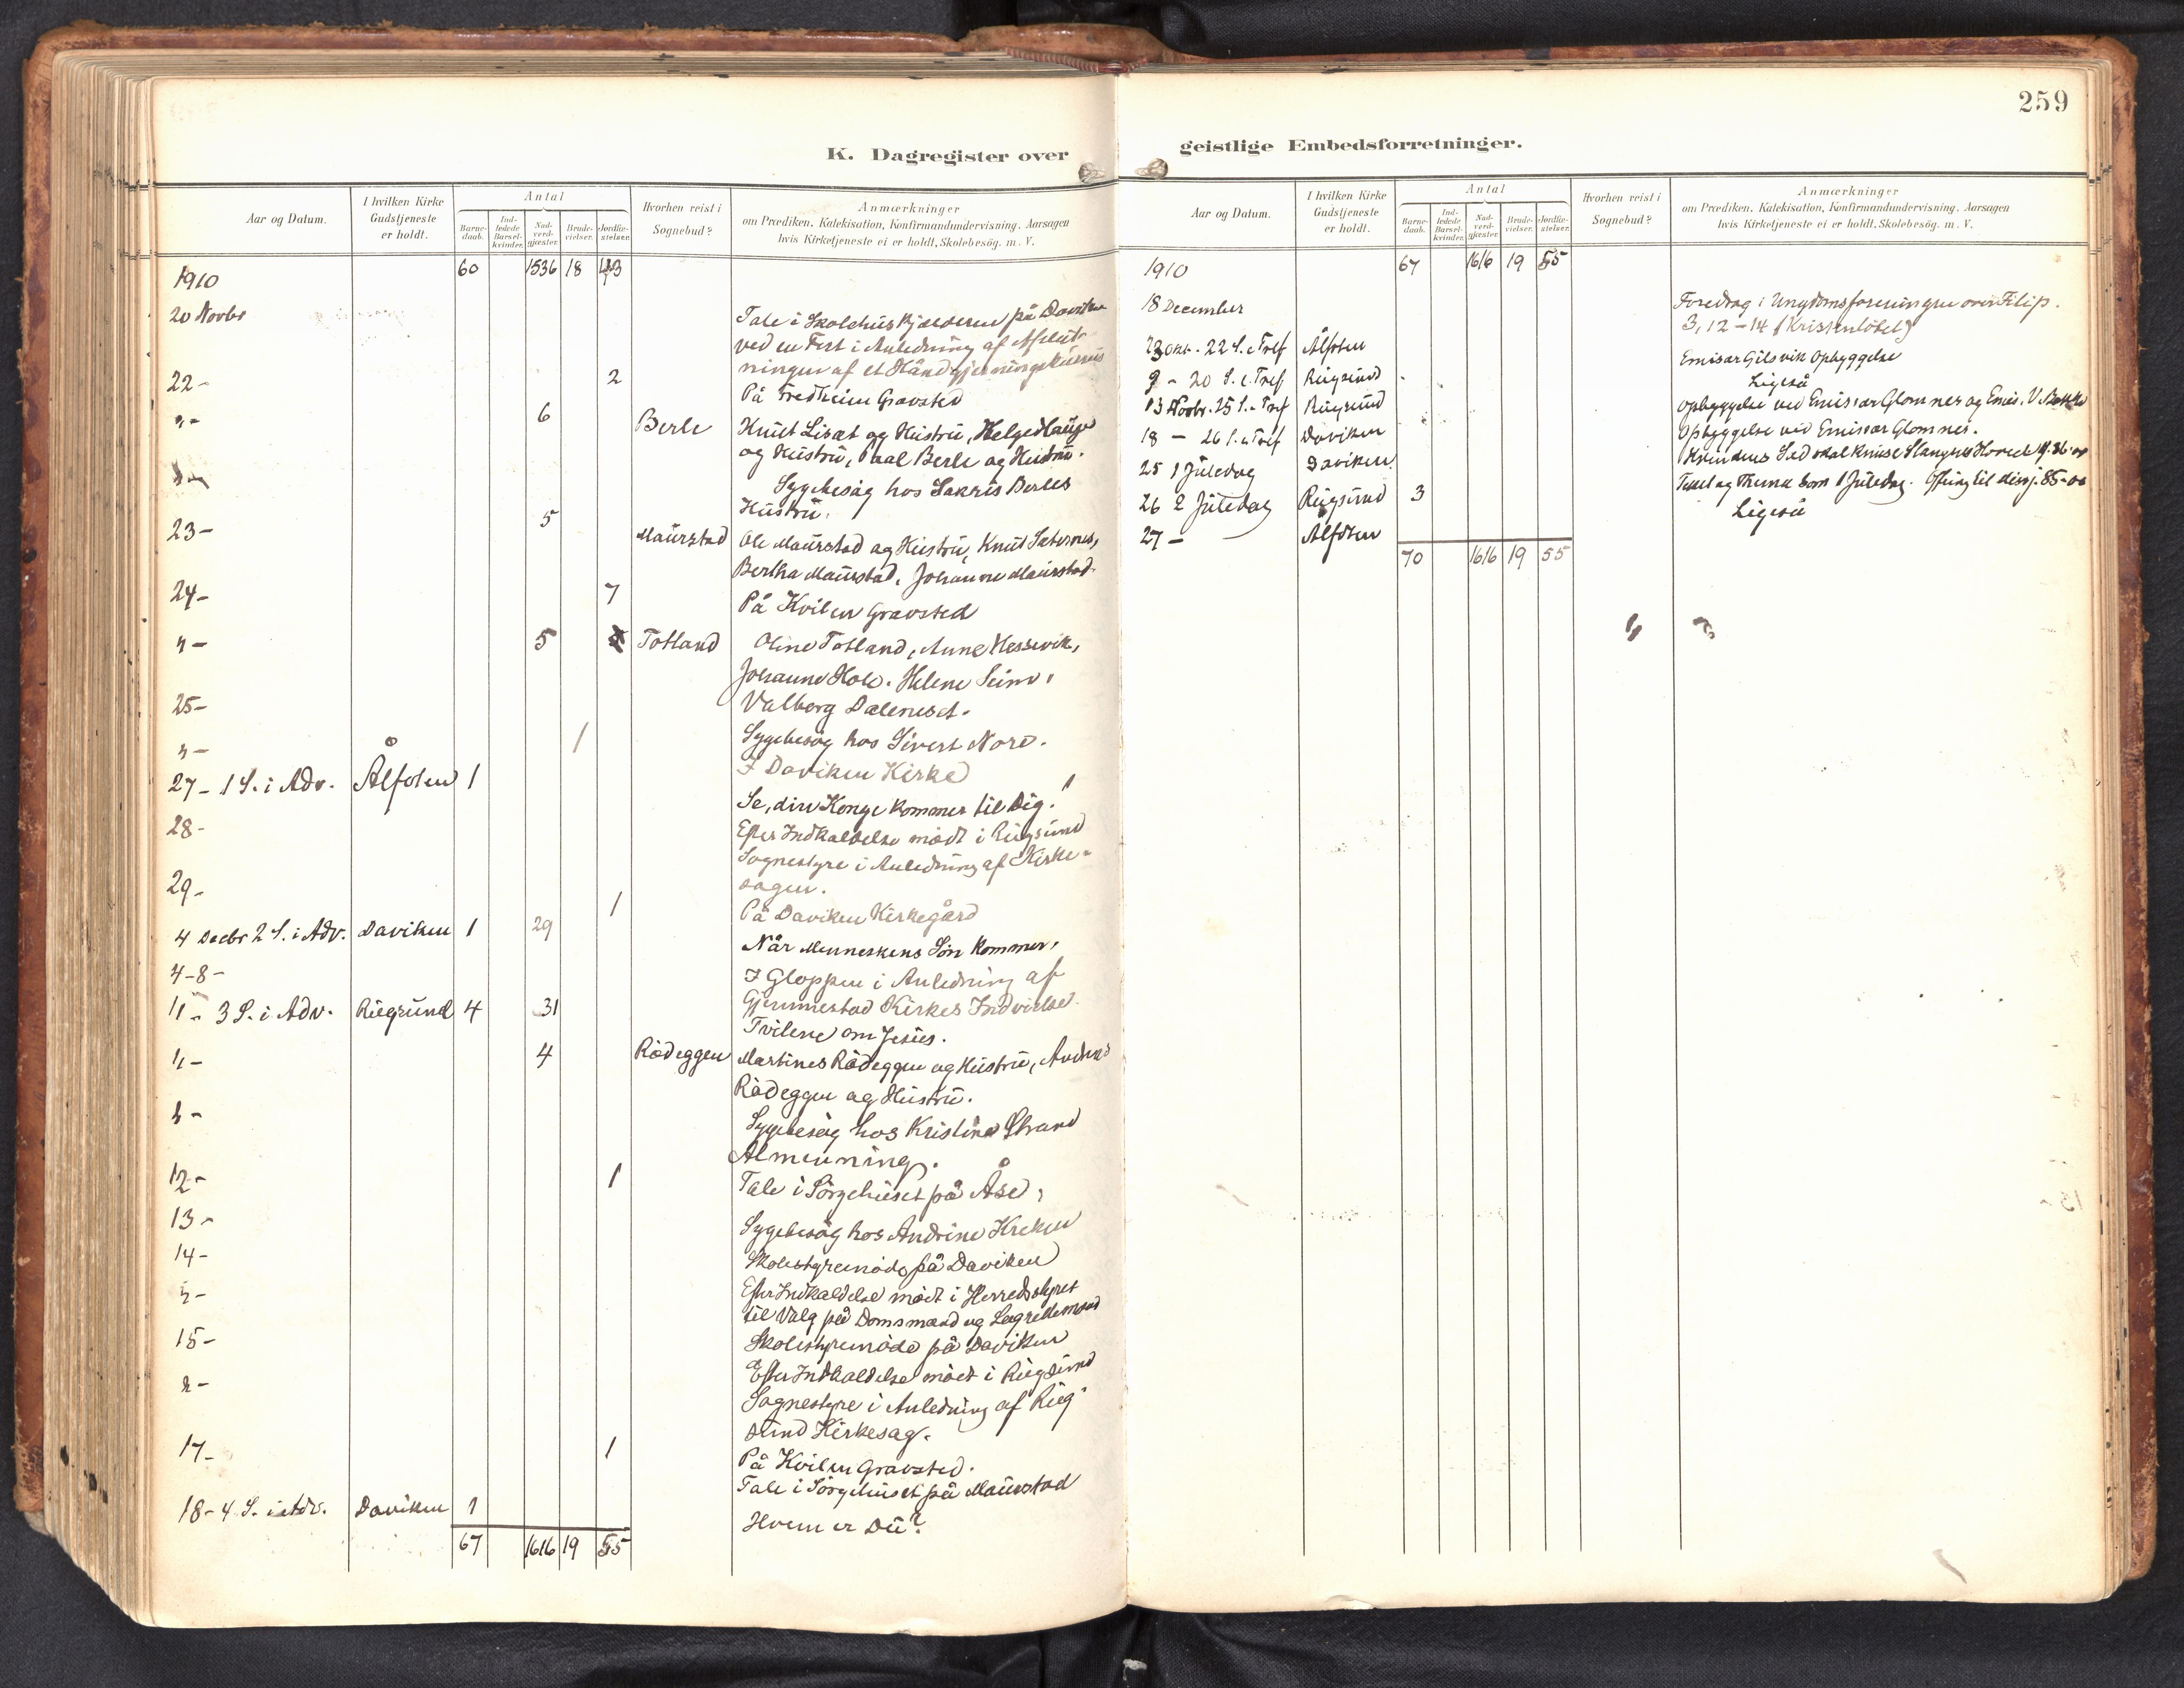 259
K. Dagregister over
Aar og Datum.
I hvilken Kirke Gudstjeneste er holdt.
Antal
Barne-daab.
Ind-ledede Barsel-kvinder.
Nad-verd-gjæster.
Brude-vielser.
Jordfæ-stelser.
Hvorhen reist i Sognebud?
Anmærkninger
om Prædiken, Katekisation, Konfirmandundervisning, Aarsagen
hvis Kirketjeneste ei er holdt, Skolebesög, m. V.
1910 60 1536 18 43
20 Novbr Tale i Skolehuskjælderen på Daviken
ved en Fest i Anledning af Afslut-
ningen af et Håndgjerningskursus
22 - 2 På Fredheim Gravsted
"- 6 Berle Knut Liset og Hustru, Helge Hauge
og Hustru, Paal Berle og Hustru.
"- Sygebesøg hos Sakris Berles
Hustru.
23 - 5 Maurstad Ole Maurstad og Hustru, Knut Sæternes,
Bertha Maurstad, Johanne Maurstad
24 - 7 På Hvilen Gravsted
"- 5 Totland Oline Totland, Anne Hessevik,
Johanne Hole. Helene Seim,
Valborg Daleneset.
25 - Sygebesøg hos Sivert Nore.
"- 1 I Daviken Kirke
27 - 1 S. i Adv. Ålfoten 1 Se, din Konge kommer til Dig!
28 - Efter Indkaldelse mødt i Rugsund
Sognestyre i Anledning af Kirke-
sagen.
29 - 1 På Daviken Kirkegård
4 Decbr 2 S. i Adv. Daviken 1 29 Når Menneskens Søn kommer.
4-8 - I Gloppen i Anledning af
Gjemmestad Kirkes Indvielse.
11 - 3 S. i Adv. Rugsund 4 31 Tvilene om Jesus.
"- 4 Rødeggen Martines Rødeggen og Hustru, Anders
Rødeggen og Hustru.
"- Sygebesøg hos Kristine Strand
Almenning.
12 - 1 Tale i Sørgehuset på Åse,
13 - Sygebesøg hos Andrine Kreken
14 - Skolestyremøde på Daviken
"- Efter Indkaldelse mødt i Herredsstyret
til Valg på Domsmænd og Lagrettemænd
15 - Skolestyremøde på Daviken
"- Efter Indkaldelse mødt i Rugsund
Sognestyre i Anledning af Rug-
sund Kirkesag.
17 - 1 På Hvilen Gravsted.
Tale i Sørgehuset på Maurstad
18 - 4 S. i Adv. Daviken 1 Hvem er Du?
67 1616 19 55
geistlige Embedsforretninger.
Aar og Datum.
I hvilken Kirke Gudstjeneste er holdt.
Antal
Barne-daab.
Ind-ledede Barsel-kvinder.
Nad-verd-gjæster.
Brude-vielser.
Jordfæ-stelser.
Hvorhen reist i Sognebud?
Anmærkninger
om Prædiken, Katekisation, Konfirmandundervisning, Aarsagen
hvis Kirketjeneste ei er holdt, Skolebesög, m. V.
1910 67 1616 19 55
18 December Foredrag i Ungdomsforeningen over Filip.
3, 12-14 (Kristenløbet)
23 Okt. 22 S. e. Tref Ålfoten Emisær Gilsvik Opbyggelse
9 - 20 S. e. Tref Rugsund Ligeså
13 Novbr. 25 S. e. Tref Rugsund Opbyggelse ved Emisær Glomnes og Emis. V.
18 - 26 S. e. Tref Daviken Opbyggelse ved Emisær Glomnes.
25 1 Juledag Daviken Kvindens Sæd skal knuse Slangens Hoved
26 2 Juledag Rugsund 3 Text og Thema som 1 Juledag. Ofring til 85-00
27 - Ålfoten Ligeså
70 1616 19 55